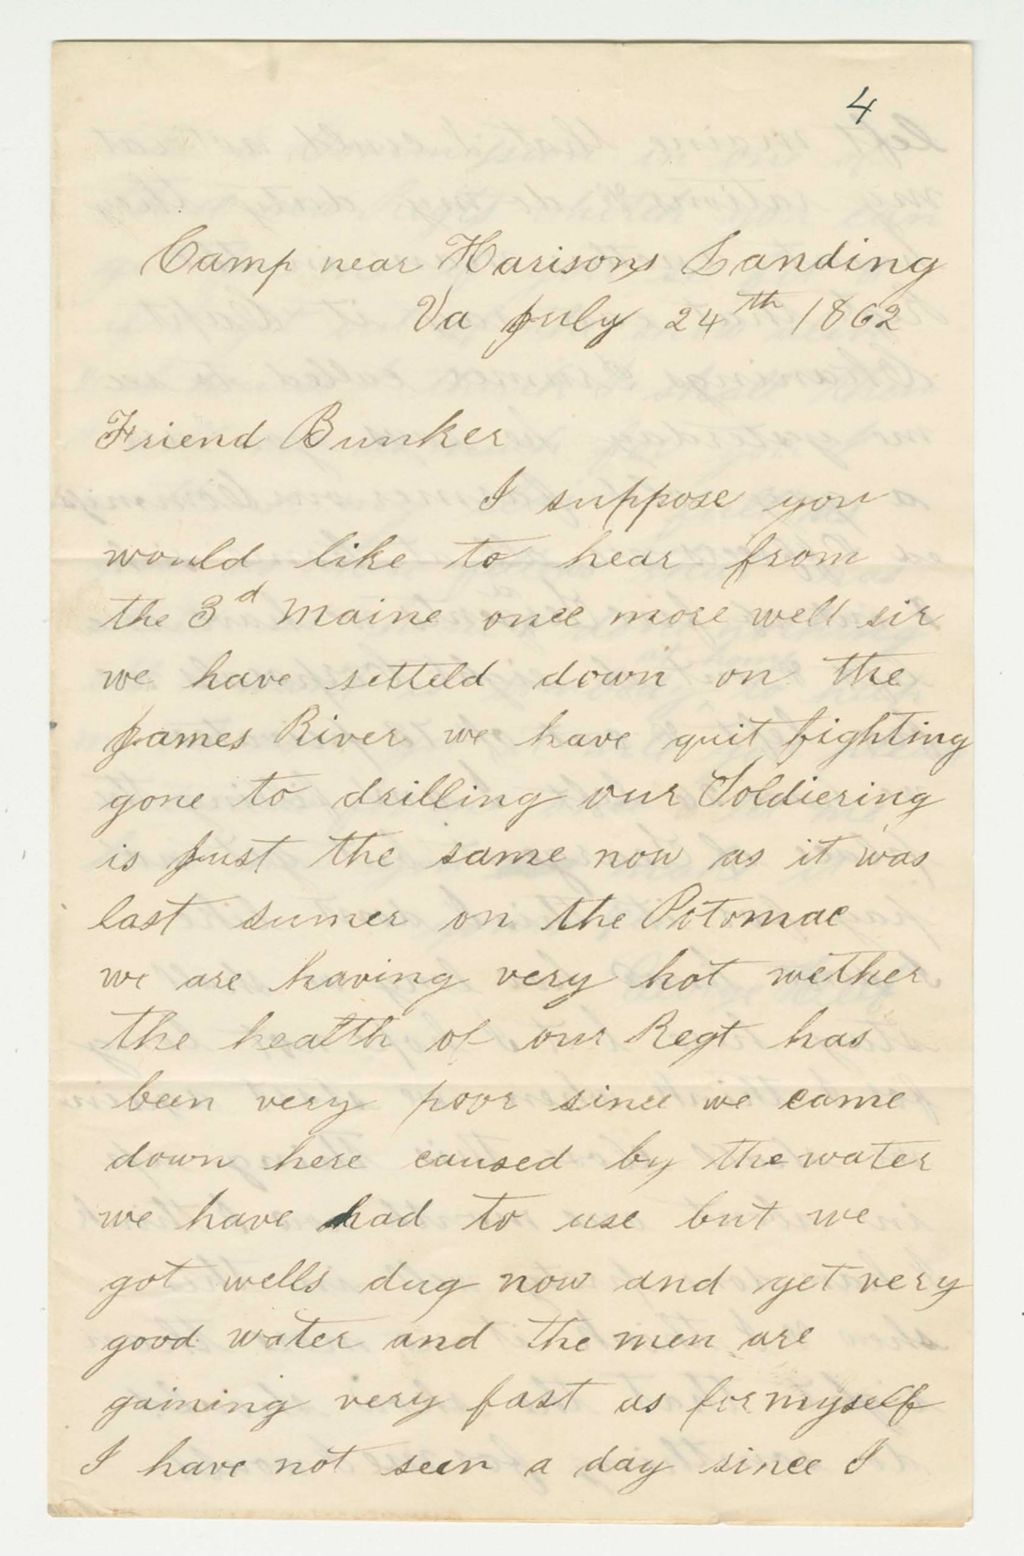 4
Camp near Harisons Landing
Va July 24th 1862
Friend Bunker
I suppose you
would like to hear from
the 3d Maine once more well sir
we have setteld down on the
James River we have quit fighting
gone to drilling our Soldiering
is just the same now as it was
last sumer on the Potomac
we are having very hot wether
the health of our Regt has
been very poor since we came
down here caused by the water
we have had to use but we
got wells dug now and get very
good water and the men are
gaining very fast as for myself
I have not seen a day since I